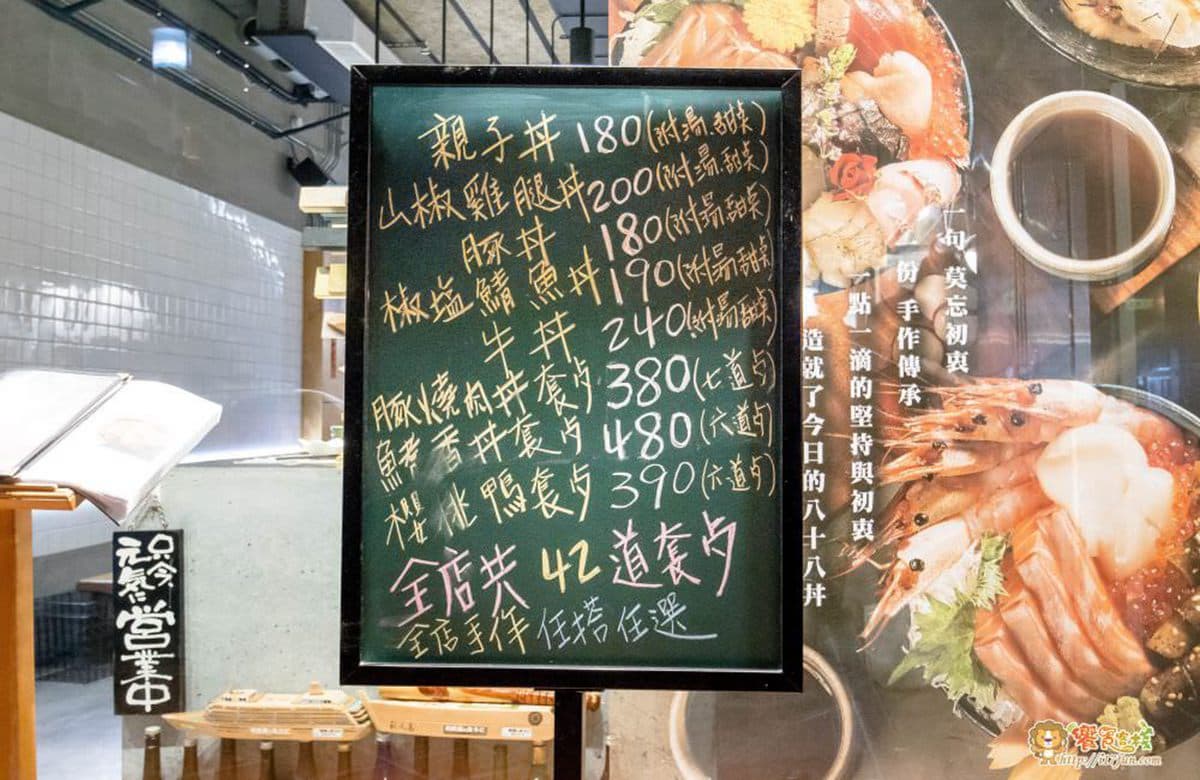 親子丼 180(附湯.甜点)
山椒雞腿丼 200(附湯.甜点)
豚丼 180(附湯.甜点)
椒塩鯖魚丼 190(附湯.甜点)
牛丼 240(附湯.甜点)
豚燒肉丼套歺 380(七道歺)
香丼套歺 480(六道歺)
櫻桃鴨套歺 390(六道歺)
全店共 42 道套歺
全店手作 任搭任選
一句 莫忘初衷
一份 手作傳承
一點一滴的堅持與初衷
造就了今日的八十八丼
只今
元気に
営業中
http://i17fun.com/